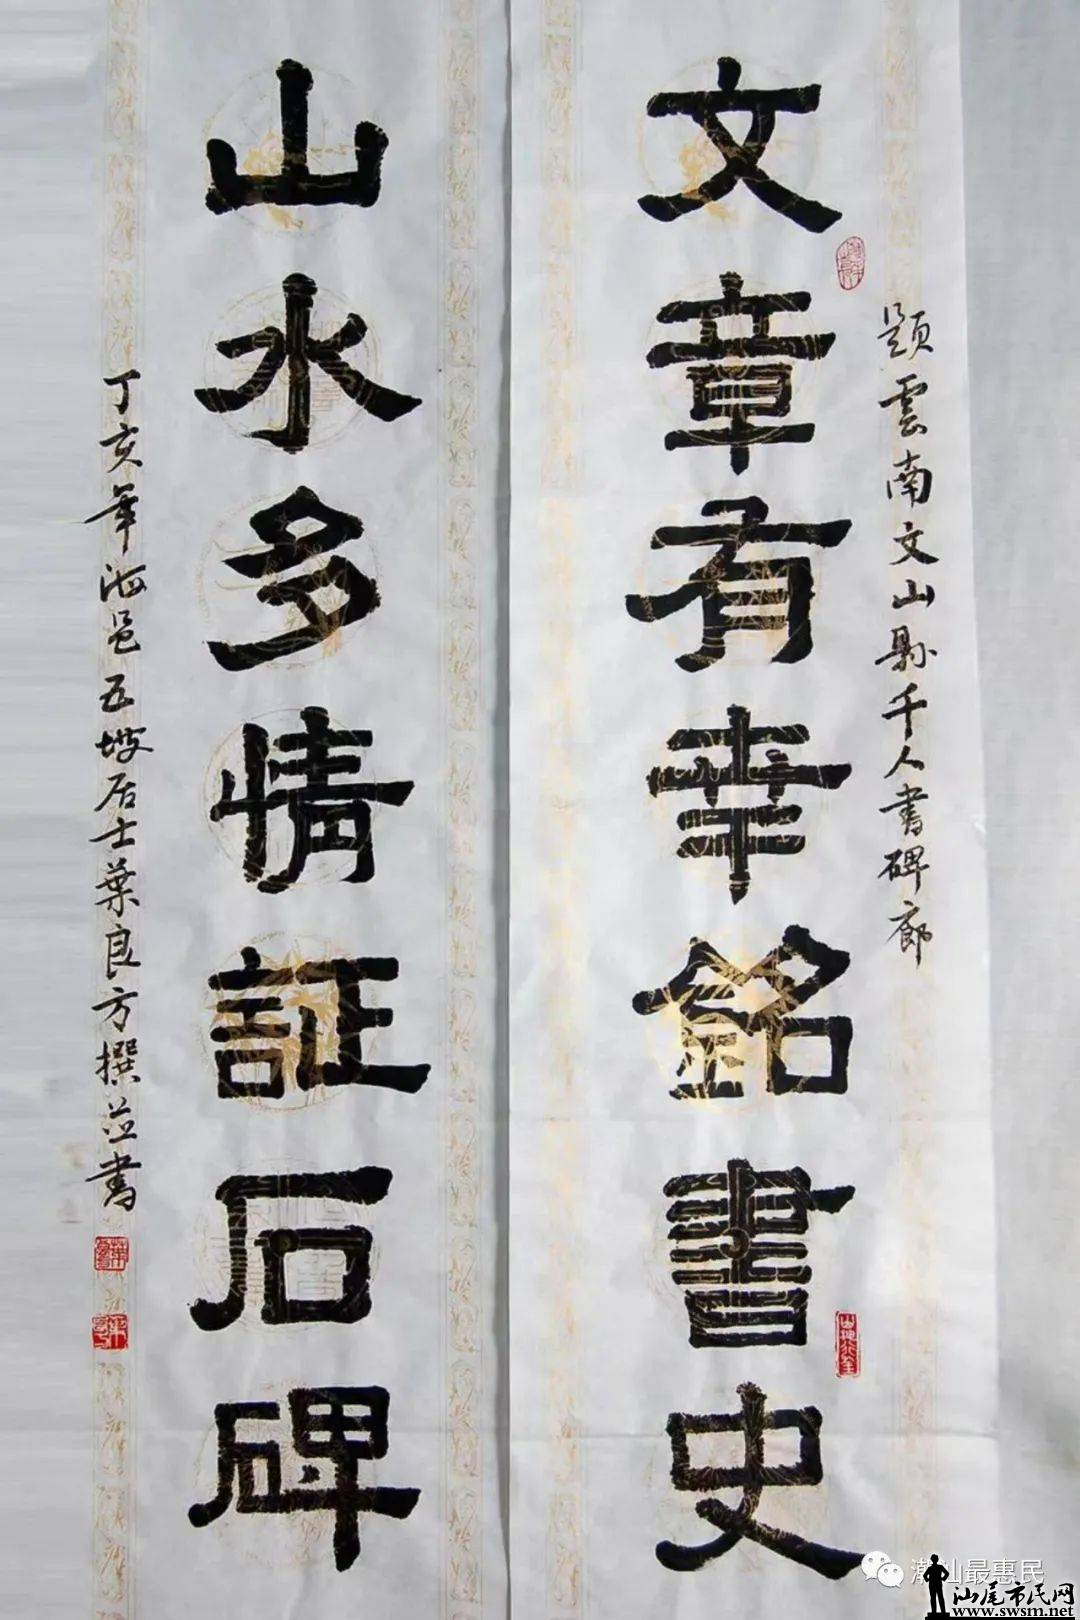 題雲南文山縣千人書碑廊
文章有華銘書史
山水多情証石碑
丁亥年海邑五坡居士葉良方撰並書
潮汕最惠民
汕尾市民网
www.swsm.net